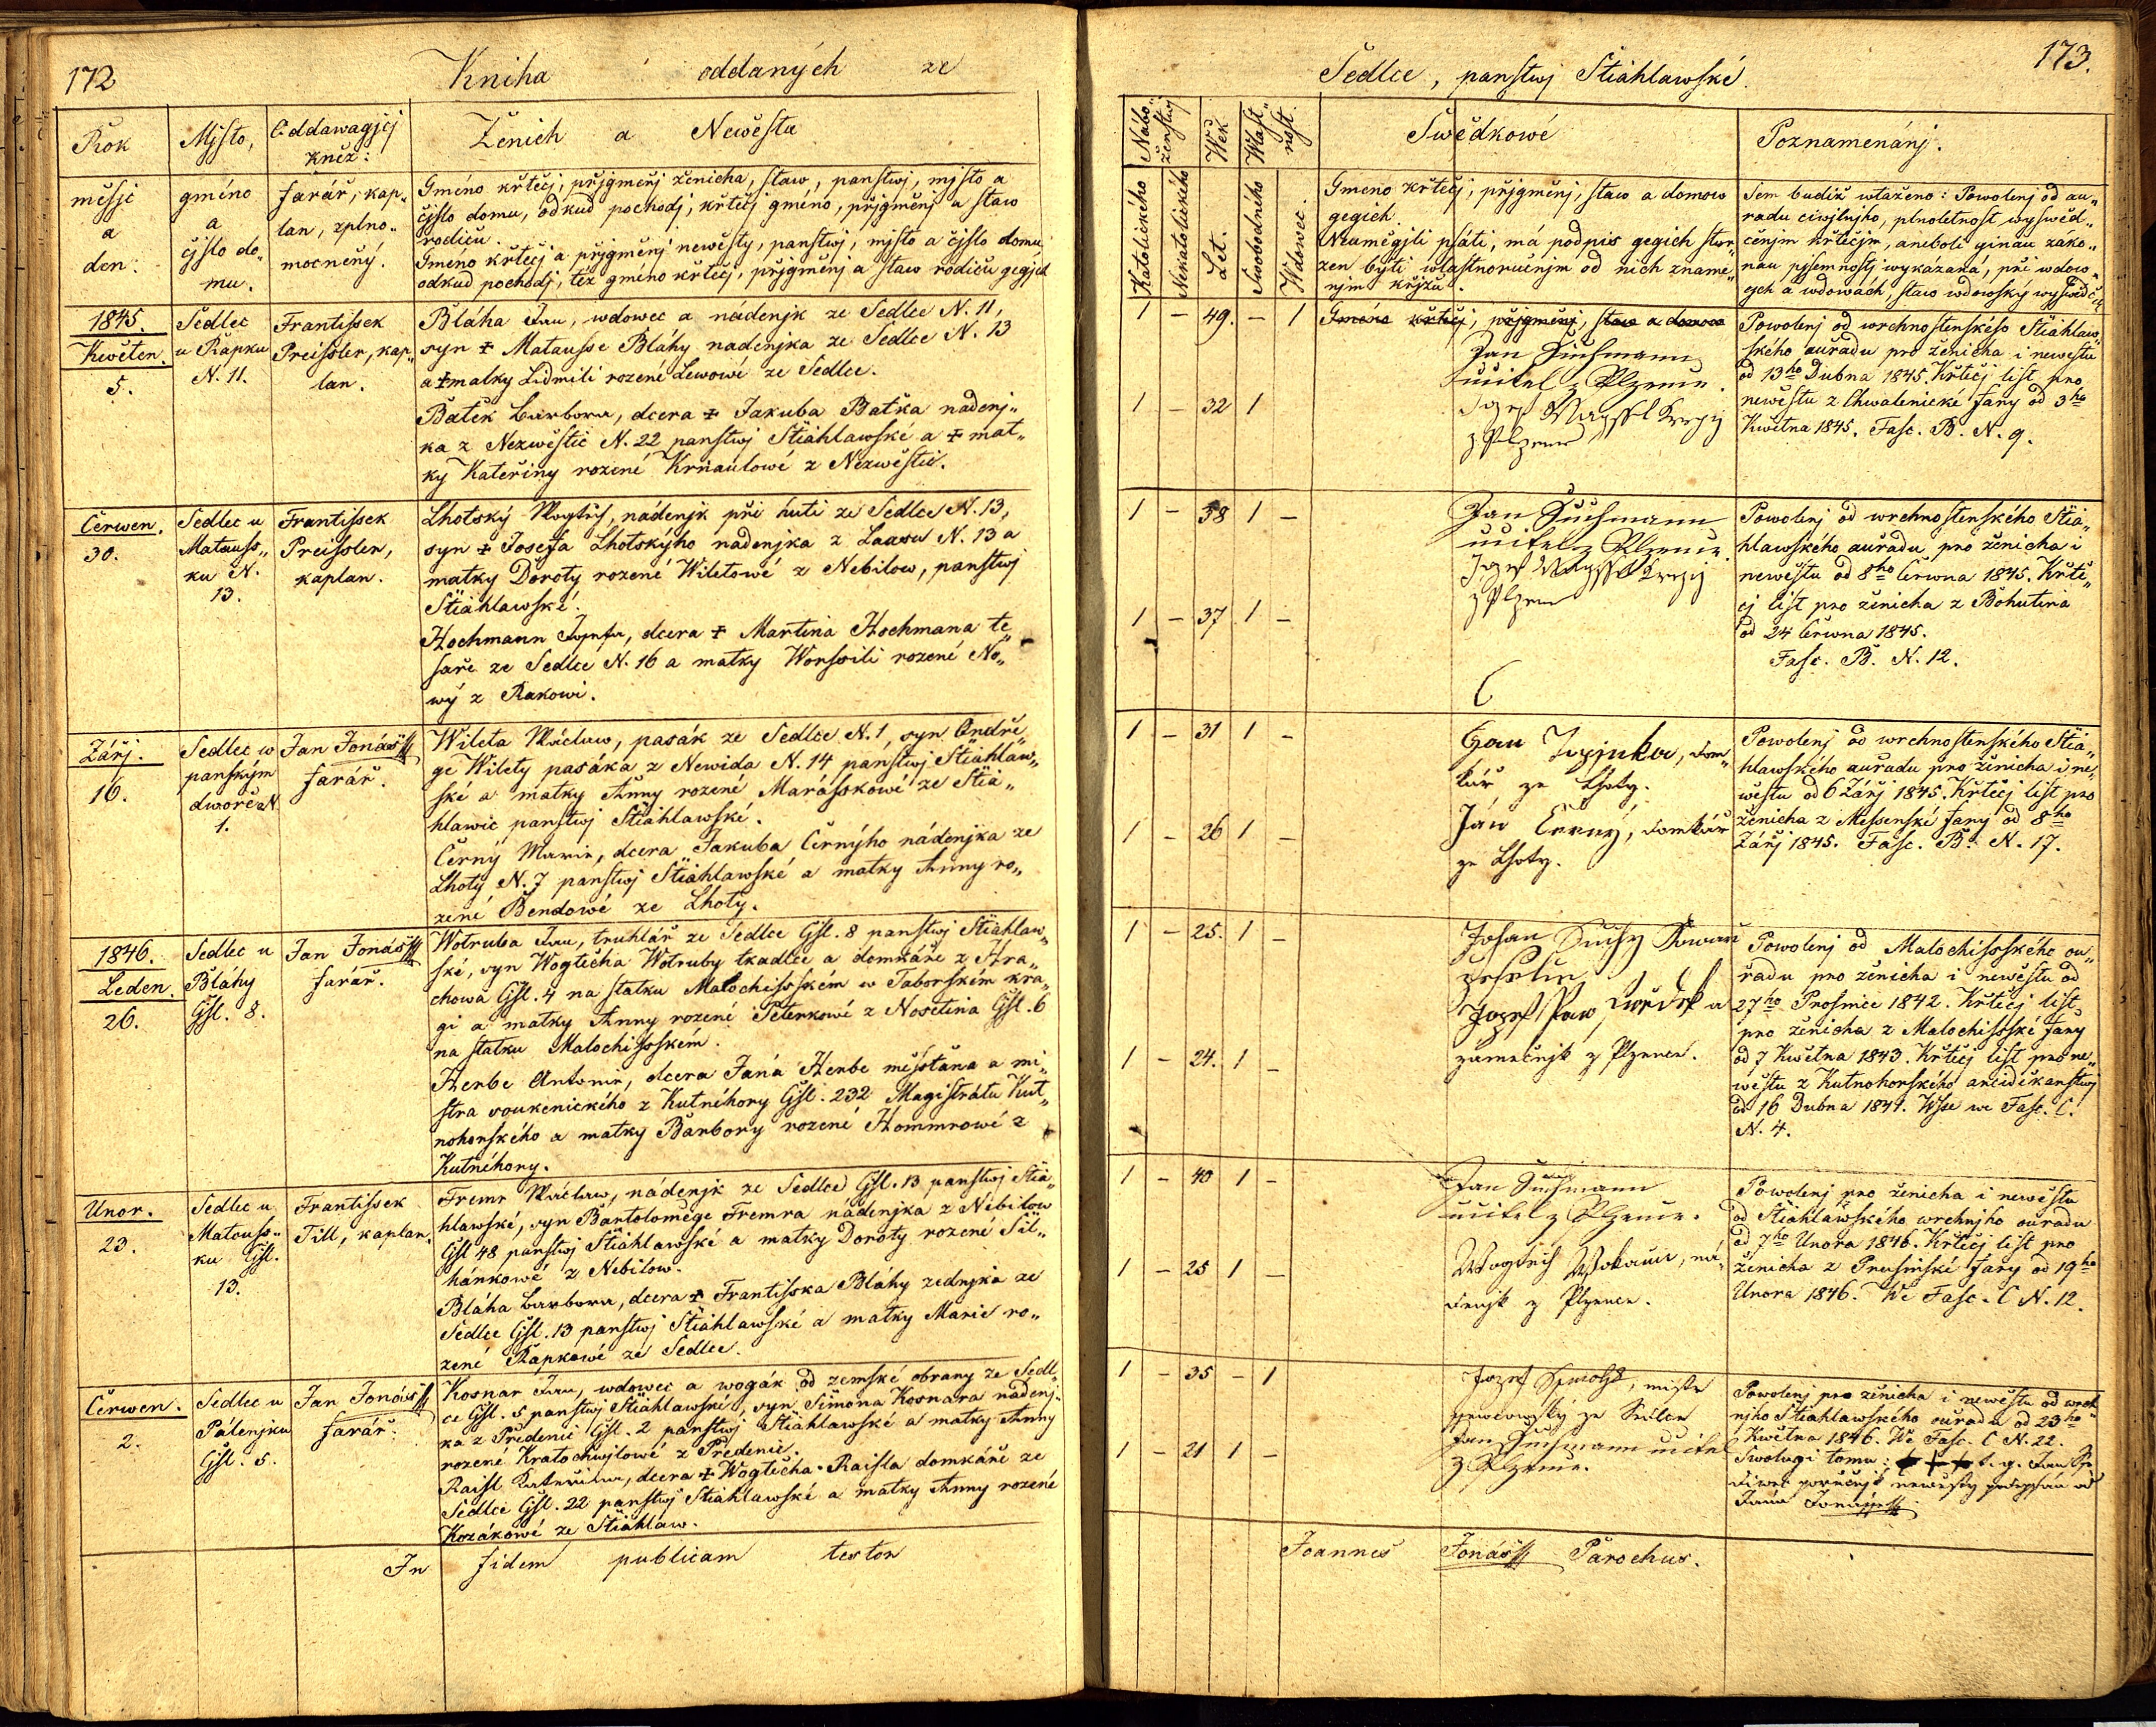 172
Kniha oddaných ze
Rok
Mjsto,
Oddawagjcj
kněz:
Ženich a Newěsta
měsjc
a
den:
gméno
a
čjslo do„
mu.
farář, kap„
lan, zplno„
mocněný.
Gméno křtěcj, přjgměnj ženicha, staw, panstwj, mjsto a
čjslo domu, odkud pochodj, křtěcj gméno, přjgměnj a staw
rodičů.
Gméno křtěcj a přjgměnj newěsty, panstwj, mjsto a čjslo domu,
odkud pochodj, též gméno křtěcj, přjgměnj a staw rodičů gegjch
1845.
Kwěten.
5.
Sedlec
u Rapku
N. 11.
Frantissek
Preissler, kap„
lan.
Bláha Jan, wdowec a nádenjk ze Sedlce N. 11,
syn ‡ Matausse Bláhy nádenjka ze Sedlce N. 13
a ‡ matky Lidmili rozené Lewowé ze Sedlce.
Batěk Barbora, dcera ‡ Jakuba Batka nádenj„
ka z Nezwěstic N. 22 panstwj Stiáhlawské a ‡ mat„
ky Kateřiny rozené Krňaulowé z Nezwěstic.
Čerwen.
30.
Sedlec u
Matauss„
ku N.
13.
Frantissek
Preissler,
kaplan.
Lhotský Wogtěch, nádenjk při huti ze Sedlce N. 13,
syn ‡ Josefa Lhotskýho nádenjka z N. 13 a
matky Doroty rozené Wiletowé z Nebilow, panstwj
Stiáhlawské.
Hochmann Josefa, dcera ‡ Martina Hochmana te„
saře ze Sedlce N. 16 a matky Worssili rozené No„
wý z Rakowi.
Zářj.
16.
Sedlec w
panským
dwoře N.
1.
Jan Jonáš
farář.
Wileta Wáclaw, pasák ze Sedlce N. 1, syn Ondře„
ge Wilety pasáka z Newida N. 14 panstwj Stiáhlaw„
ské a matky Anny rozené Marásskowé ze Stiá„
hlawic panstwj Stiáhlawské.
Černý Marie, dcera Jakuba Černýho nádenjka ze
Lhoty N. 7 panstwj Stiáhlawské a matky Anny ro„
zené Bendowé ze Lhoty.
1846.
Leden.
26.
Sedlec u
Bláhy
Čjsl. 8.
Jan Jonáš
farář.
Wotruba Jan, truhlář ze Sedlce Čjsl. 8 panstwj Stiáhlaw„
ské, syn Wogtěcha Wotruby tkadlce a domkáře z Hra„
chowa Čjsl. 4 na statku Malochisském w Taborském kra„
gi a matky Anny rozené Peterkowé z Nosetina Čjsl. 6
na statku Malochisském.
Herbe Antonie, dcera Jana Herbe měsstana a mi„
stra soukenického z Kutnéhory Čjsl. 232 Magistrátu Kut„
nohorského a matky Barbory rozené Hommrowé z
Kutnéhory.
Unor.
23.
Sedlec u
Matouss„
ku Čjsl.
13.
Frantissek
Till, kaplan.
Fremr Wáclaw, nádenjk ze Sedlce Čjsl. 13 panstwj Stiá„
hlawské, syn Bartolomege Fremra nádenjka z Nebilow
Čjsl 48 panstwj Stiáhlawské a matky Doroty rozené Sil„
hánkowé z Nebilow.
Bláha Barbora, dcera ‡ Frantisska Bláhy zednjka ze
Sedlce Čjsl. 13 panstwj Stiáhlawské a matky Marie ro„
zené Rapkowé ze Sedlce.
Čerwen.
2.
Sedlec u
Pálenjku
Čjsl. 5.
Jan Jonáš
farář.
Kosnar Jan, wdowec a wogák od zemské obrany ze Sedl„
ce Čjsl. 5 panstwj Stiáhlawské, syn Simona Kosnara nádenj„
ka z Předenic Čjsl. 2 panstwj Stiáhlawské a matky Anny
rozené Kratochwjlowé z Předenic.
Raisl Kateřina, dcera ‡ Wogtěcha Raisla domkáře ze
Sedlce Čjsl. 22 panstwj Stiáhlawské a matky Anny rozené
Kozákowé ze Stiáhlaw.
In fidem publicam testor
173.
Sedlce, panstwj Stiáhlawské.
Nábo„
ženstwj
Wěk
Wlast„
nost.
Swědkowé
Poznamenánj.
Katolického
Nekatolického
Let.
Swobodného
Wdowec.
Gmeno křtěcj, přjgměnj, staw a domow
gegich.
Neumegjli psáti, má podpis gegich stwr„
zen býti wlastnoručnjm od nich zname„
njm křjžů.
Sem budiž wtaženo: Powolenj od au„
radu ciwjlnjho, plnoletnost wyswěd„
čenjm křtěcjm, aneboli ginau záko„
nau pjsemnostj wykázaná, při wdow„
cjch a wdowách, staw wdowský wyswědč
1 – 49. – 1
Gméno křtěcj, přjgměnj, staw a domow
Jan Suchmann
učitel z Plzence.
1 – 32 1
Powolenj od wrchnostenského Stiáhlaw„
ského auřadu pro ženicha i newěstu
od 13ho Dubna 1845. Křtěcj list pro
newěstu z Chwalenické fary od 3ho
Kwětna 1845. Fasc. B. N. 9.
1 – 38 1 –
Jan Suchmann
učitel z Plzence.
1 – 37 1 –
Powolenj od wrchnostenského Stiá„
hlawského auřadu pro ženicha i
newěstu od 8ho Čerwna 1845. Křtě„
cj list pro ženicha z Bohutina
od 24 Čerwna 1845.
Fasc. B. N. 12.
1 – 31 1 –
Jan , dom„
kář ze Lhoty.
1 – 26 1 –
Ján Černý, domkář
ze Lhoty.
Powolenj od wrchnostenského Stiá„
hlawského auřadu pro ženicha i ne„
wěstu od 6 Zářj 1845. Křtěcj list pro
ženicha z Missenské fary od 8ho
Zářj 1845. Fasc. B. N. 17.
1 – 25. 1 –
Johan Suchy
Jozef
1 – 24. 1 –
zámečnjk z Plzence.
Powolenj od Malochisského ou„
řadu pro ženicha i newěstu od
27ho Prosince 1842. Křtěcj list
pro ženicha z Malochisské fary
od 7 Kwětna 1843. Křtěcj list pro ne„
wěstu z Kutnohorského arciděkanstwj
od 16 Dubna 1841. Wsse we Fasc. C.
N. 4.
1 – 40 1 –
Jan Suchmann
učitel z Plzence.
1 – 25 1 –
Wogtěch , ná„
denjk z Plzence.
Powolenj pro ženicha i newěstu
od Stiáhlawského wrchnjho ouřadu
od 7ho Unora 1846. Křtěcj list pro
ženicha z Prusinské fary od 19ho
Unora 1846. We Fasc. C N. 12.
1 – 35 – 1
Jozef , mistr
ze Sedlce
1 – 21 1 –
Jan Suchmann učitel
z Plzence.
Powolenj pro ženicha i newěstu od wrch„
njho Stiáhlawského ouřadu od 23ho
Kwětna 1846. We Fasc. C N. 22.
Swolugi tomu:
Joannes Jonáš Parochus.